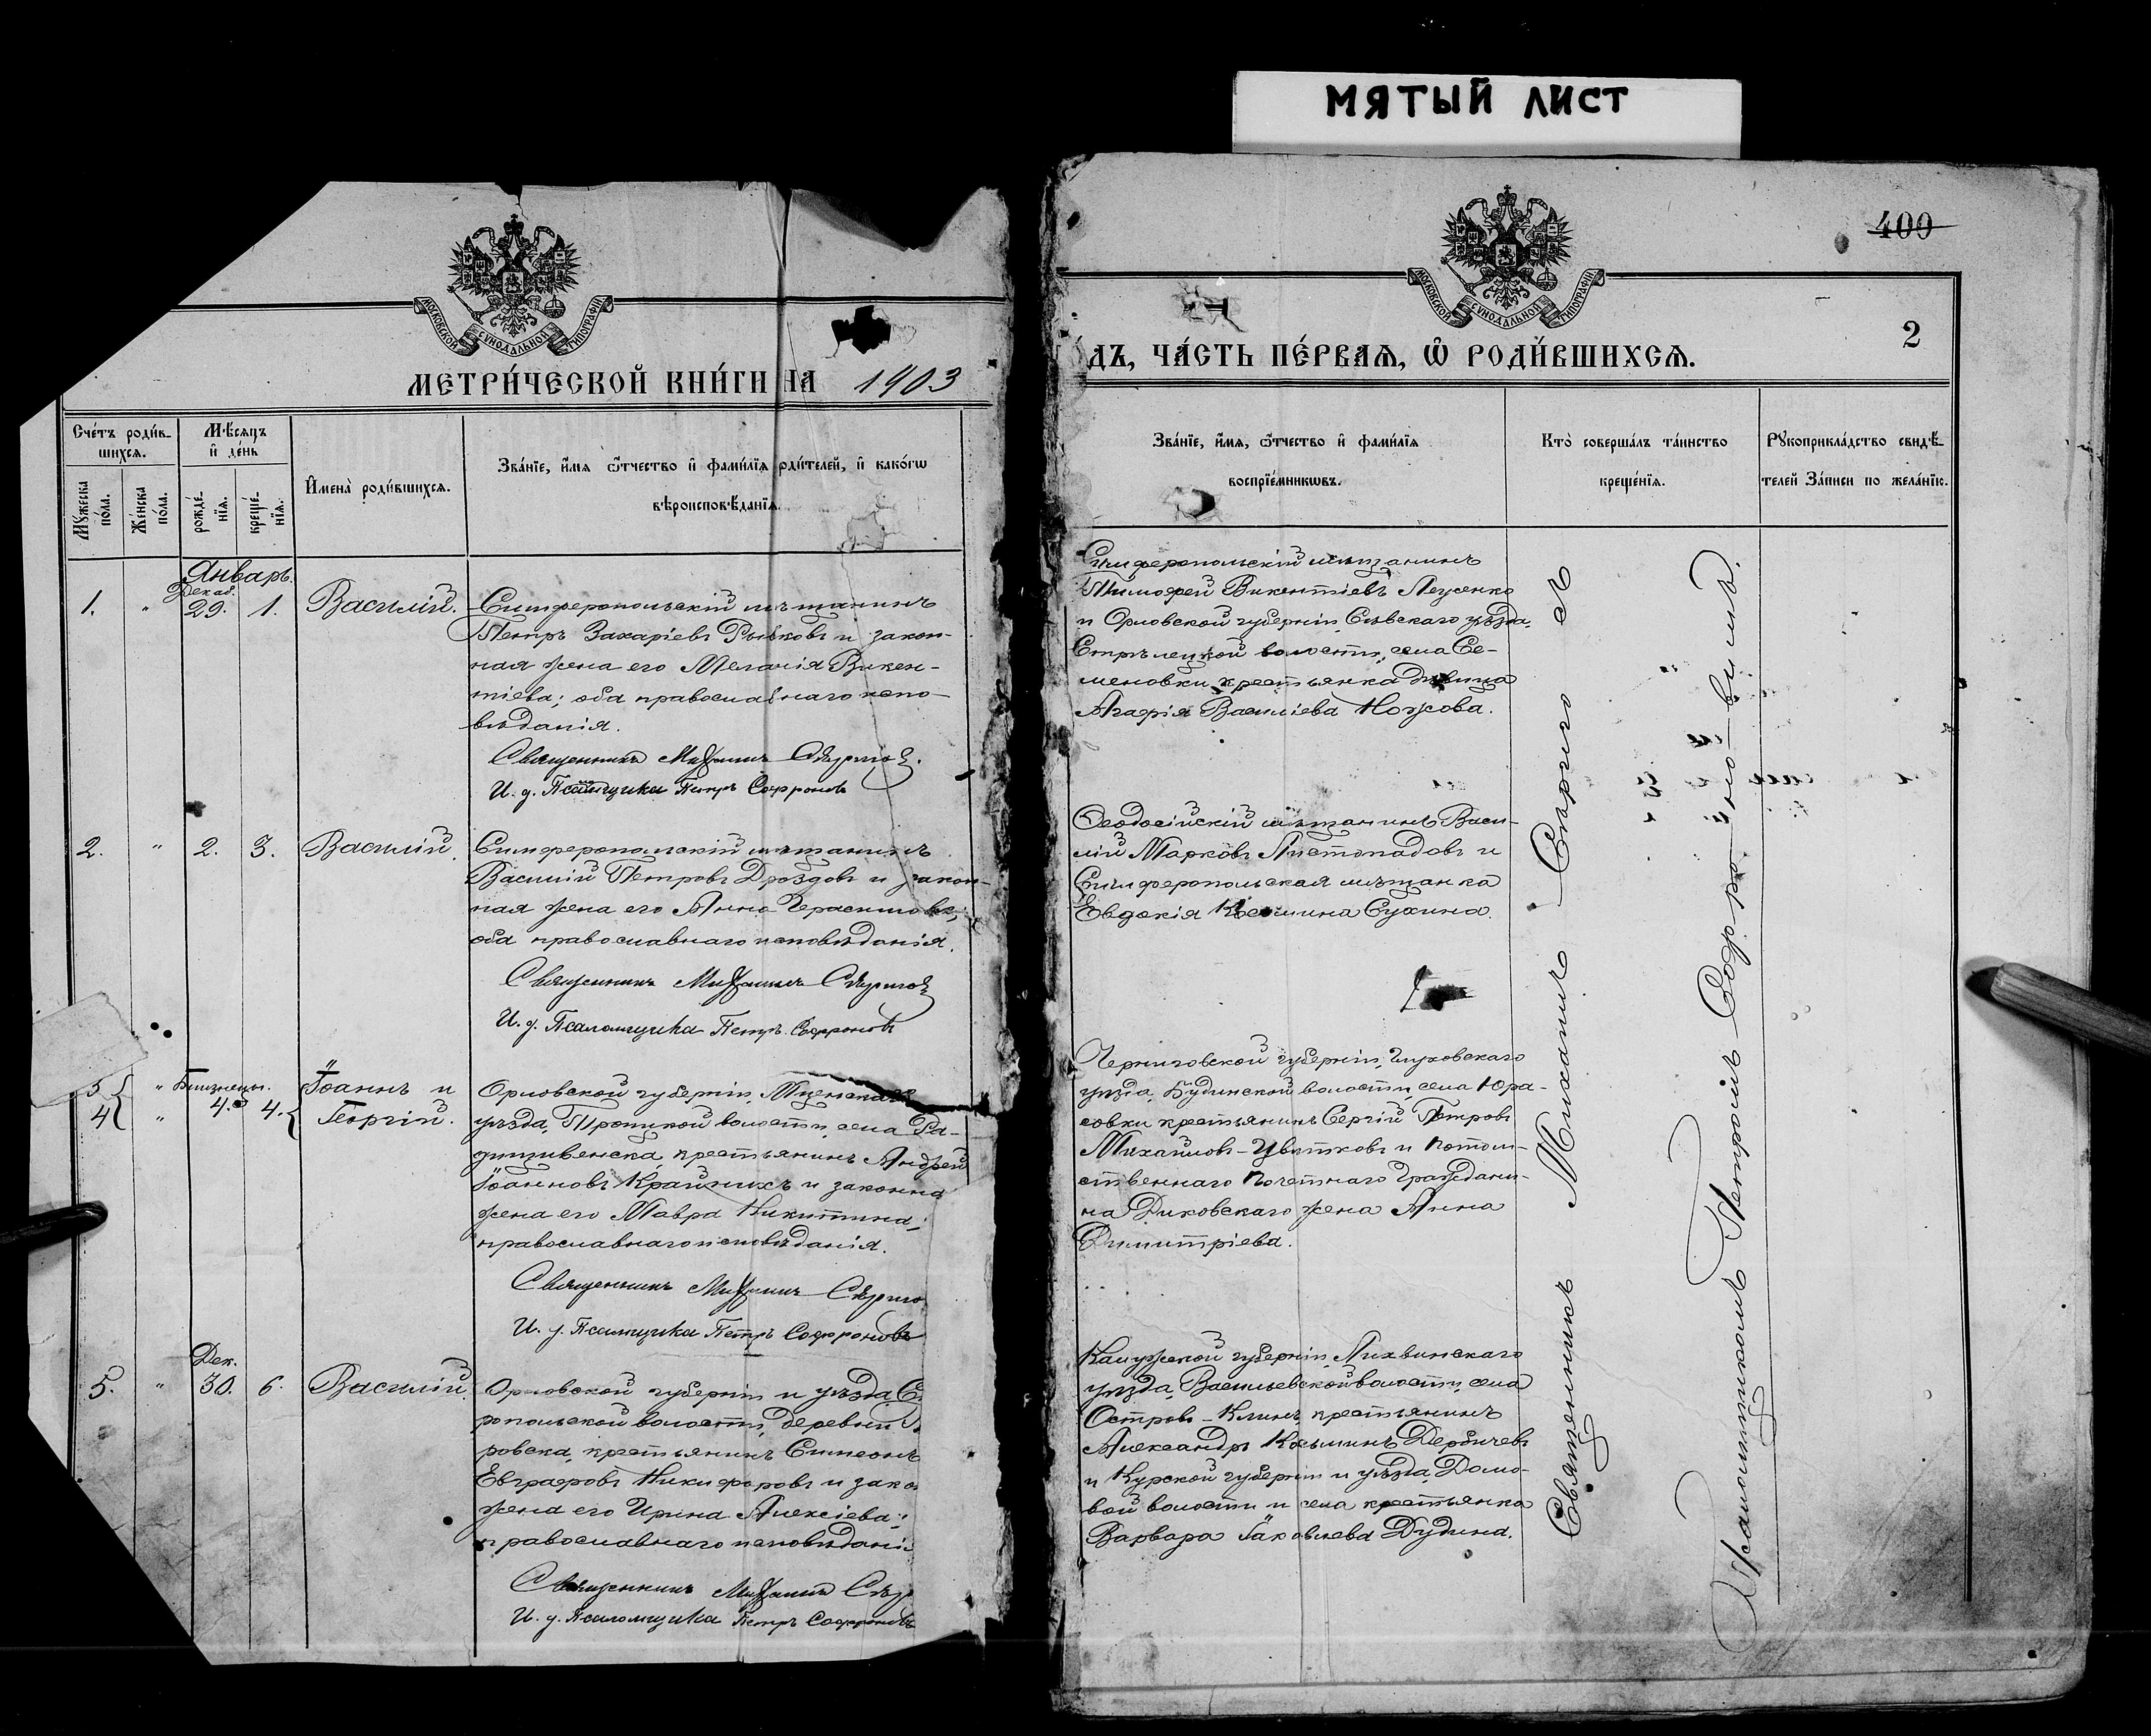 МЯТЫЙ ЛИСТ
МОСКОВСКОЙ СѴНОДАЛЬНОЙ ТИПОГРАФІИ
МЕТРИ́ЧЕСКОЙ КНИ́ГИ НА 1903
Сче́тъ роди́в-
шихся.
Мѣ́сяцъ
и҆ де́нь
Мꙋ́жеска
по́ла.
Же́нска
по́ла.
рожде́-
нїѧ.
креще́-
нїѧ.
И҆мена̀ роди́вшихсѧ.
Зва́нїе, и҆́мѧ ѻ҆́тчество и҆ фами́лїѧ роди́телей, и҆ како́гѡ
вѣроисповѣ́данїѧ.
Январь.
Декаб.
1. " 29. 1. Василій.
Симферопольскій мѣщанинъ
Петръ Захаріевъ Рыбковъ и закон-
ная жена его Меланія Викен-
тіева; оба православнаго испо-
вѣданія.
Священникъ Михаилъ
И. д. Псаломщика Петръ Софроновъ
2. " 2. 3. Василій.
Симферопольскій мѣщанинъ
Василій Петровъ Дроздовъ и закон-
ная жена его Анна Герасимова;
оба православнаго исповѣданія.
Священникъ Михаилъ
И. д. Псаломщика Петръ Софроновъ
3 " Близнецы.
4 " 4. 4.
Іоаннъ и
Георгій.
Орловской губерніи, Мценскаго
уѣзда, Троицкой волости, села
крестьянинъ Андрей
Іоанновъ Крайнихъ и законна
жена его Мавра Никитина;
православнаго исповѣданія.
Священникъ Михаилъ
И. д. Псаломщика Петръ Софроновъ
Дек.
5. " 30. 6. Василій.
Орловской губерніи и уѣзда,
ропольской волости, деревни
ровска, крестьянинъ Симеонъ
Евграфовъ Никифоровъ и зако
жена его Ирина Алексіева;
православнаго исповѣдані
Священникъ Михаилъ
И. д. Псаломщика Петръ Софроновъ
400
2
МОСКОВСКОЙ СѴНОДАЛЬНОЙ ТИПОГРАФІИ
ДЪ, ЧА́СТЬ ПЕ́РВАѦ, Ѽ РОДИ́ВШИХСѦ.
Зва́нїе, и҆́мѧ, ѻ҆́тчество и҆ фами́лїѧ
воспрїе́мникѡвъ.
Кто̀ соверша́лъ та́инство
креще́нїѧ.
Рꙋкоприкла́дство свидѣ́-
телей За́писи по жела́нїю.
Симферопольскій мѣщанинъ
Тимофей Викентіевъ
и Орловской губерніи, Сѣвскаго уѣзда,
Стрѣлецкой волости, села Се-
меновки, крестьянка дѣвица
Агафія Васильева Ножова.
Ѳеодосійскій мѣщанинъ Васи-
лій Марковъ Листопадовъ и
Симферопольская мѣщанка
Евдокія Косьмина Сухина.
Черниговской губерніи, Глуховскаго
уѣзда, Будинской волости, села Юра-
совки крестьянинъ Сергій Петровъ
Михайловъ-Цвѣтковъ и потом-
ственнаго почетнаго гражда́ни-
на Диковскаго жена Анна
Димитріева.
Калужской губерніи, Лихвинскаго
уѣзда, Васильевской волости, села
Островъ-Клинъ, крестьянинъ
Александръ Косьминъ Дербичевъ
и Курской губерніи и уѣзда,
вой волости и села крестьянка
Варвара Іаковлева Дудина.
Священникъ Михаилъ
съ
Псаломщикомъ Петромъ Софро-
но-вимъ.